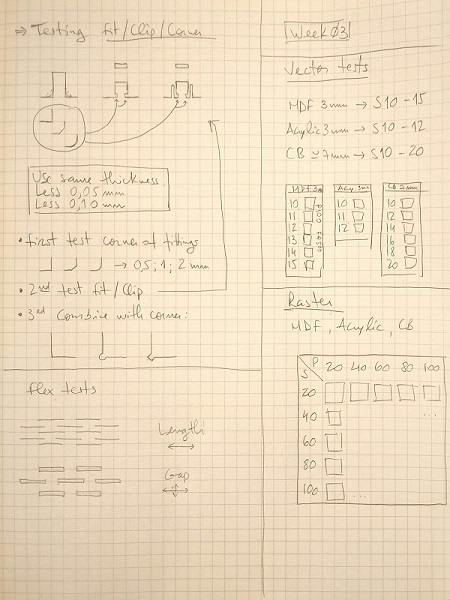 ⇒ Testing fit/Clip/Corner
Use same thickness
Less 0,05 mm
Less 0,10 mm
• First test corner of fittings
→ 0,5; 1; 2 mm
• 2nd test fit/Clip
• 3rd Combine with corner:
flex tests
Length
Gap
Week 03
Vector tests
MDF 3mm → S10-15
Acrylic 3mm → S10-12
CB ≃7mm → S10-20
MDF 3m
10
11
12
13
14
15
P100
Acry 3mm
10
11
12
10
12
14
16
18
20
Raster
MDF, Acrylic, CB
P
S
20 40 60 80 100
20
40 ...
60
80
100 ...